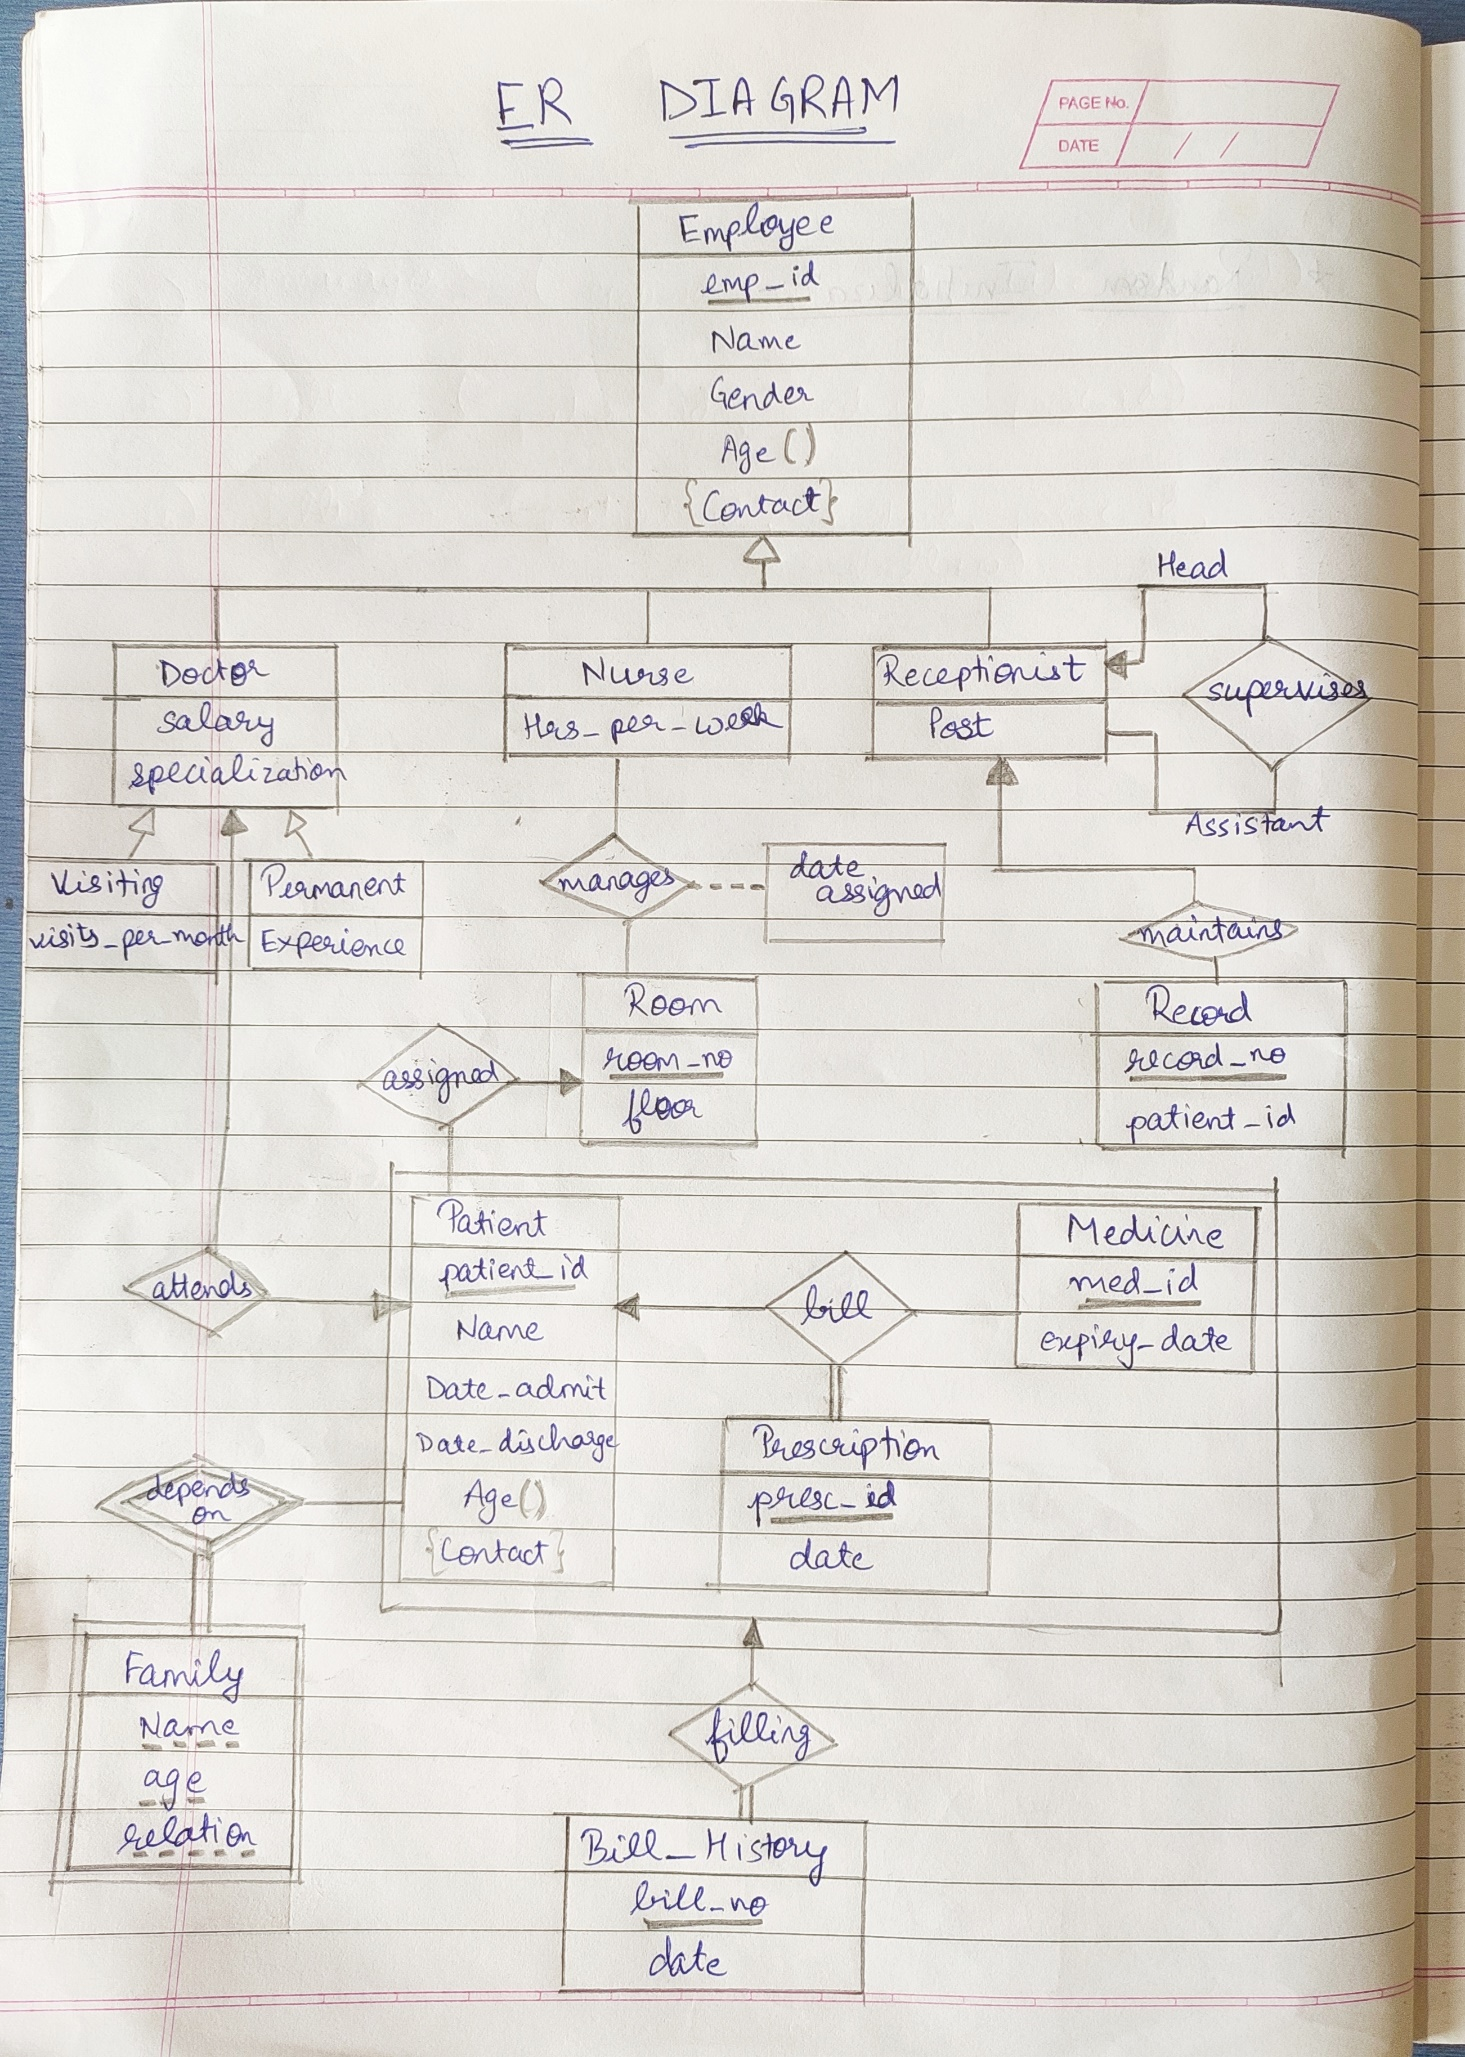 ER DIAGRAM
PAGE No.
DATE / /
Employee
emp_id
Name
Gender
Age ()
{Contact}
Head
Doctor
salary
specialization
Nurse
Hrs_per_week
Receptionist
Post
supervises
Assistant
Visiting
visits_per_month
Permanent
Experience
manages
date
assigned
maintains
Room
room_no
floor
assigned
Record
record_no
patient_id
Patient
patient_id
Name
Date_admit
Date_discharge
Age()
{Contact}
attends
bill
Medicine
med_id
expiry_date
Prescription
presc_id
date
depends
on
Family
Name
age
relation
filling
Bill_History
bill_no
date